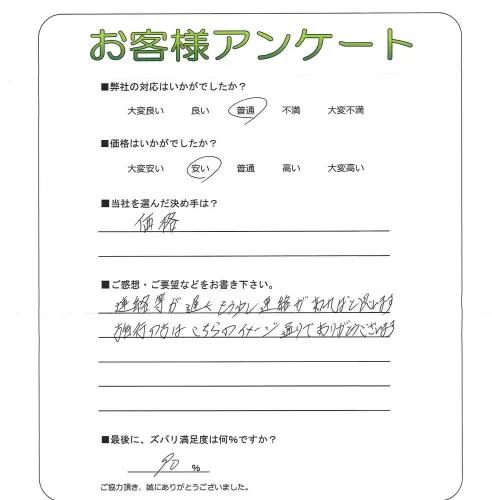 お客様アンケート
■弊社の対応はいかがでしたか？
大変良い 良い 普通 不満 大変不満
■価格はいかがでしたか？
大変安い 安い 普通 高い 大変高い
■当社を選んだ決め手は？
価格
■ご感想・ご要望などをお書き下さい。
連絡等が遅くもう少し連絡があればと思います
施行の方はこちらのイメージ通りでありがとうございます
■最後に、ズバリ満足度は何％ですか？
90 %
ご協力頂き、誠にありがとうございました。